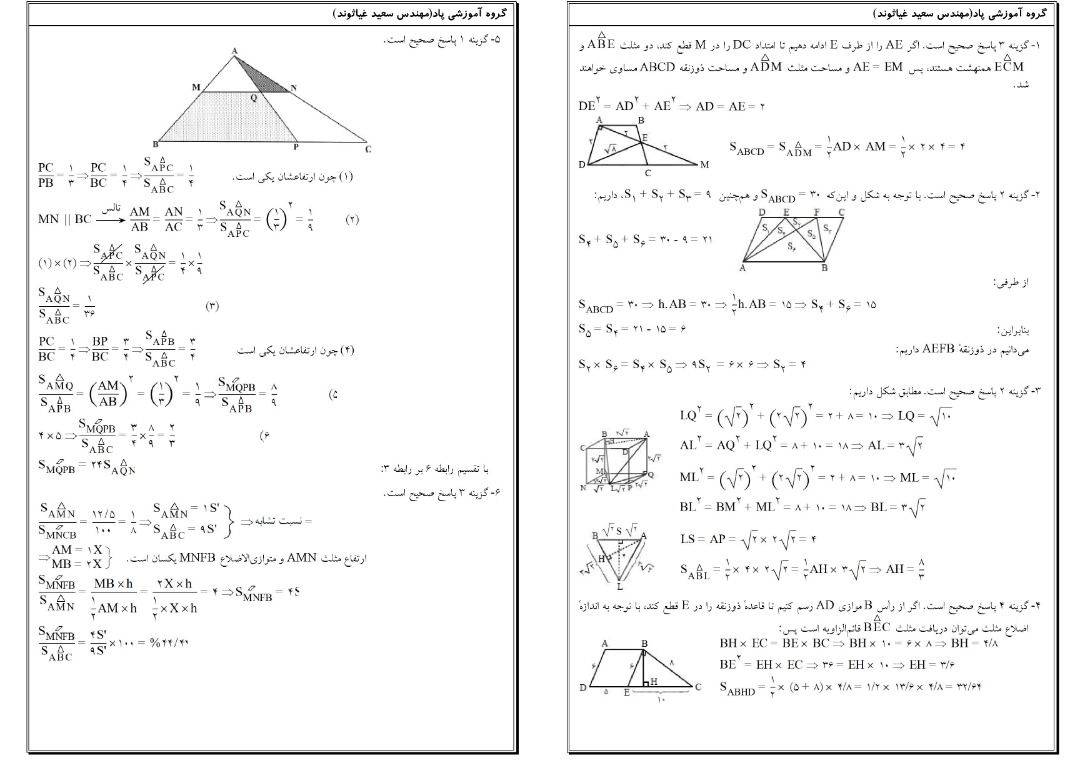 گروه آموزشی پاد(مهندس سعید غیاثوند)
۱- گزینه ۳ پاسخ صحیح است. اگر AE را از طرف E ادامه دهیم تا امتداد DC را در M قطع کند، دو مثلث ABE و
ECM همنهشت هستند، پس AE = EM و مساحت مثلث ADM و مساحت ذوزنقه ABCD مساوی خواهند
شد.
DE² = AD² + AE² ⇒ AD = AE = ۲
A B E D C M ۲ ۲ ۲ √۸
S_ABCD = S_ADM = ۱/۲ AD × AM = ۱/۲ × ۲ × ۴ = ۴
۲- گزینه ۲ پاسخ صحیح است. با توجه به شکل و این‌که S_ABCD = ۳۰ و هم‌چنین S₁ + S₂ + S₃ = ۹، داریم:
D E F C A B
S₄ + S₅ + S₆ = ۳۰ - ۹ = ۲۱
از طرفی:
S_ABCD = ۳۰ ⇒ h.AB = ۳۰ ⇒ ۱/۲ h.AB = ۱۵ ⇒ S₄ + S₆ = ۱۵
بنابراین: S₅ = S₄ = ۲۱ - ۱۵ = ۶
می‌دانیم در ذوزنقهٔ AEFB داریم:
S₂ × S₆ = S₄ × S₅ ⇒ ۹S₂ = ۶ × ۶ ⇒ S₂ = ۴
۳- گزینه ۲ پاسخ صحیح است. مطابق شکل داریم:
LQ² = (√۲)² + (۲√۲)² = ۲ + ۸ = ۱۰ ⇒ LQ = √۱۰
AL² = AQ² + LQ² = ۸ + ۱۰ = ۱۸ ⇒ AL = ۳√۲
ML² = (√۲)² + (۲√۲)² = ۲ + ۸ = ۱۰ ⇒ ML = √۱۰
BL² = BM² + ML² = ۸ + ۱۰ = ۱۸ ⇒ BL = ۳√۲
B A C D M Q N L P
LS = AP = √۲ × ۲√۲ = ۴
S_ABL = ۱/۲ × ۴ × ۲√۲ = ۱/۲ AH × ۳√۲ ⇒ AH = ۸/۳
B √۲ S √۲ A H L
۴- گزینه ۴ پاسخ صحیح است. اگر از رأس B موازی AD رسم کنیم تا قاعدهٔ ذوزنقه را در E قطع کند، با توجه به اندازهٔ
اضلاع مثلث می‌توان دریافت مثلث BEC قائم‌الزاویه است پس:
BH × EC = BE × BC ⇒ BH × ۱۰ = ۶ × ۸ ⇒ BH = ۴/۸
BE² = EH × EC ⇒ ۳۶ = EH × ۱۰ ⇒ EH = ۳/۶
S_ABHD = ۱/۲ × (۵ + ۸) × ۴/۸ = ۱/۲ × ۱۳/۶ × ۴/۸ = ۳۲/۶۴
A B D E H C ۶ ۶ ۸ ۵ ۱۰
گروه آموزشی پاد(مهندس سعید غیاثوند)
۵- گزینه ۱ پاسخ صحیح است.
A M Q N B P C
PC/PB = ۱/۳ ⇒ PC/BC = ۱/۴ ⇒ S_APC/S_ABC = ۱/۴ (۱) چون ارتفاعشان یکی است.
MN || BC تالس AM/AB = AN/AC = ۱/۳ ⇒ S_AQN/S_APC = (۱/۳)² = ۱/۹ (۲)
(۱) × (۲) ⇒ S_APC/S_ABC × S_AQN/S_APC = ۱/۴ × ۱/۹
S_AQN/S_ABC = ۱/۳۶ (۳)
PC/BC = ۱/۴ ⇒ BP/BC = ۳/۴ ⇒ S_APB/S_ABC = ۳/۴ (۴) چون ارتفاعشان یکی است
S_AMQ/S_APB = (AM/AB)² = (۱/۳)² = ۱/۹ ⇒ S_MQPB/S_APB = ۸/۹ (۵
۴ × ۵ ⇒ S_MQPB/S_ABC = ۳/۴ × ۸/۹ = ۲/۳ (۶
با تقسیم رابطه ۶ بر رابطه ۳: S_MQPB = ۲۴S_AQN
۶- گزینه ۳ پاسخ صحیح است.
S_AMN/S_MNCB = ۱۲/۵/۱۰۰ = ۱/۸ ⇒ S_AMN = ۱S' S_ABC = ۹S' } ⇒ نسبت تشابه =
⇒ AM = ۱X MB = ۲X } ارتفاع مثلث AMN و متوازی‌الاضلاع MNFB یکسان است.
S_MNFB/S_AMN = MB × h / ۱/۲ AM × h = ۲X × h / ۱/۲ × X × h = ۴ ⇒ S_MNFB = ۴S
S_MNFB/S_ABC = ۴S'/۹S' × ۱۰۰ = %۴۴/۴۰